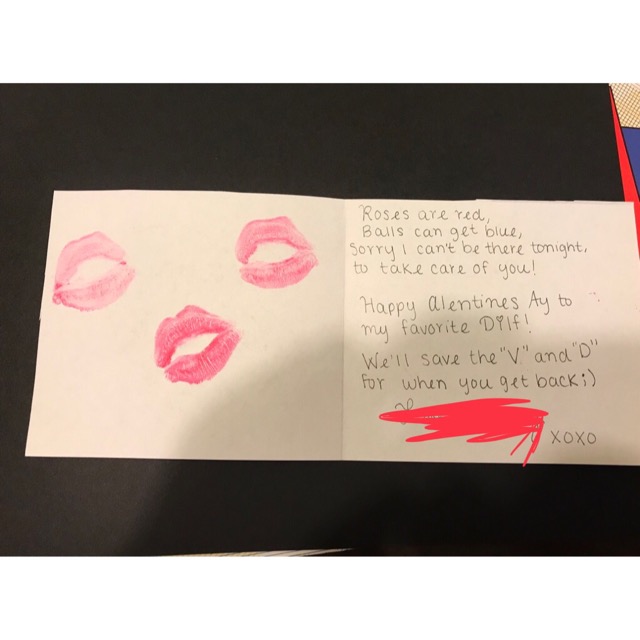 Roses are red,
Balls can get blue,
Sorry I can't be there tonight,
to take care of you!
Happy alentines Ay to
my favorite Dilf!
We'll save the "V" and "D"
for when you get back ;)
XOXO